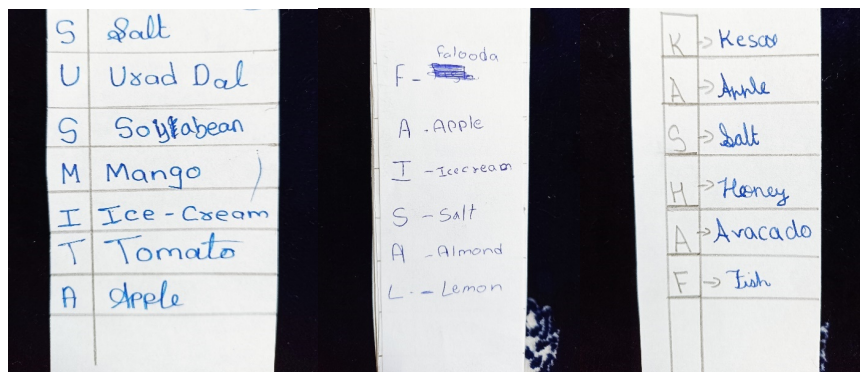 S Salt
U Urad Dal
S Soyabean
M Mango
I Ice-Cream
T Tomato
A Apple
Falooda
F -
A - Apple
I - Icecream
S - Salt
A - Almond
L - Lemon
K → Kesar
A → Apple
S → Salt
H → Honey
A → Avacado
F → Fish